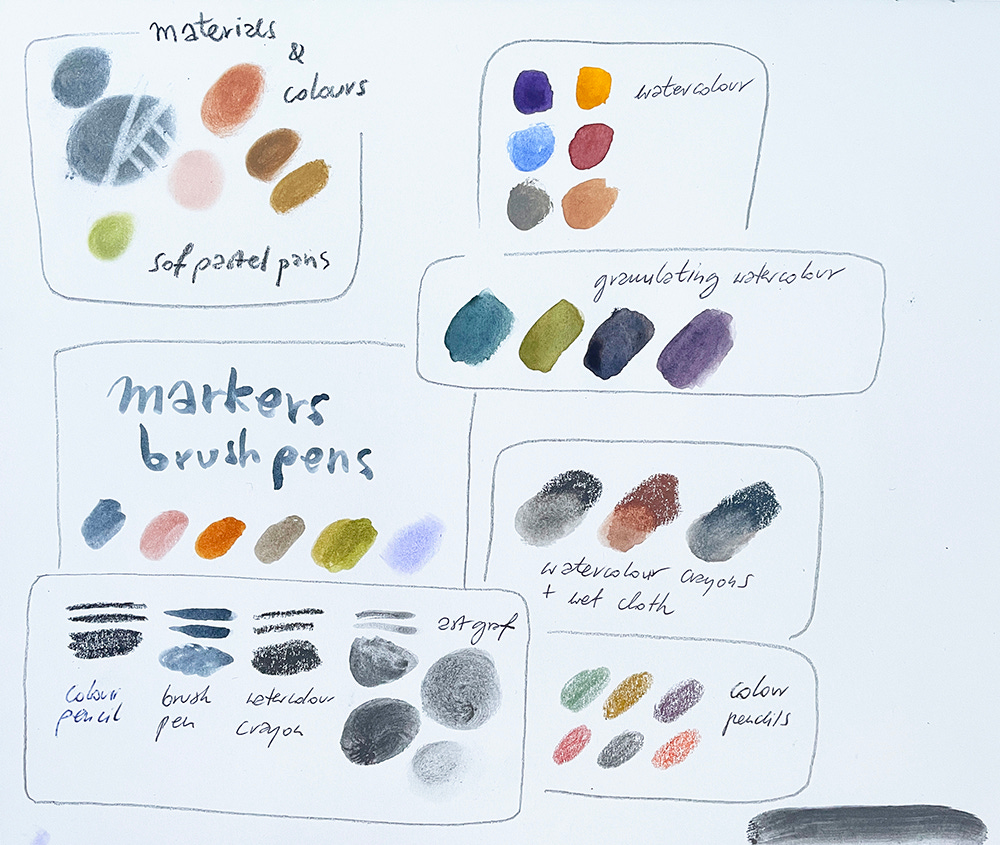 materials
&
colours
sof pastel pans
watercolour
granulating watercolour
markers
brush pens
watercolour crayons
+ wet cloth
art graf
colour
pencil
brush
pen
watercolour
crayon
colour
pencils